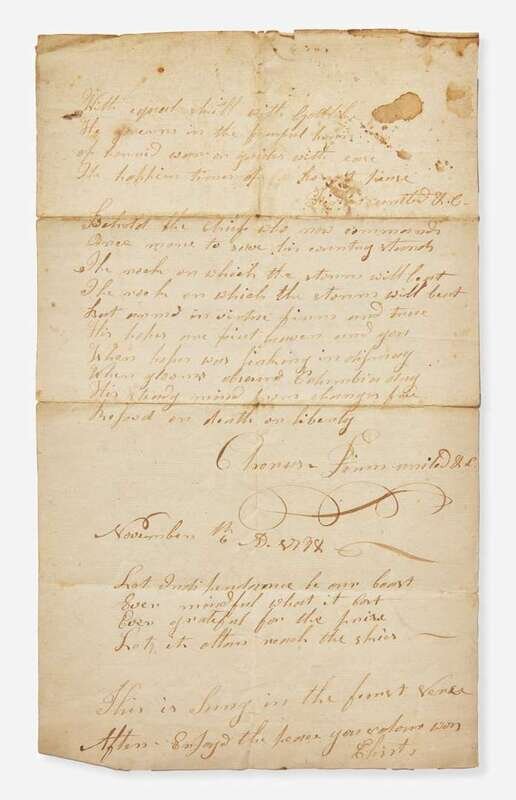 With equal skill with
He governs in the fearful hour
of horrid war or guides with ease
The happier times of honest peace
united &c.
Behold the Chief who now commands
Once more to serve his country stands
The rock on which the storm will beat
The rock on which the storm will beat
But armd in virtue firm and true
His hopes are fixt heaven and you
When hope was sinking in dismay
When glooms obscurd Columbias day
His steady mind from changes free
Resolvd on death or liberty
Chorus Firm united &c.
November 16 AD. 1798
Let Independance be our boast
Ever mindful what it cost
Ever grateful for the prise
Let, its altar reach the skies
This is Sung in the first verse
After Enjoyd the peace your valour won